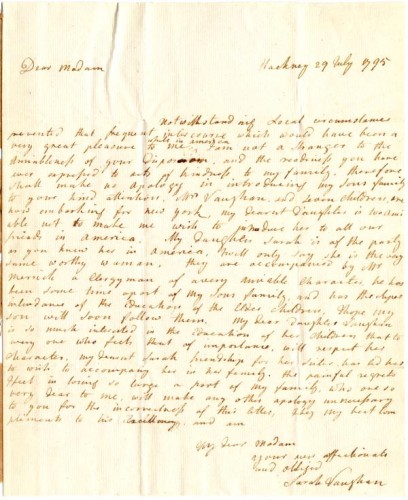 Hackney 29 July 1795
Dear Madam
Notwithstanding Local circumstances
prevented that frequent intercourse which would have been a
while in america
very great pleasure to me, I am not a Stranger to the
Amiableness of your Disposition, and the readiness you have
ever expressed to acts of kindness, to my family, therefore
shall make no apology in introducing my Sons family
to your kind attentions, Mrs Vaughan, and seven children, are
now embarking for new york, my dearest Daughter is too
able not to make me wish to produce her to all our
friends in America. My Daughter Sarah is of the party
as you knew her in america, I will only say she is the very
same worthy woman. they are accompanied by Mr
Merrick a Clergyman of a very Amiable Character, he has
been some time apart of my Sons family, and has the Super
intendance of the Education of the Elder Children, I hope my
son will soon follow them. My dear Daughter Vaughan
is so much interested in the Education of her Children that to
every one who feels that of importance, will respect her
character, my dearest Sarah friendship for her sister, has led her
to wish to accompany her in new family. the painful regrets
I feel in losing so large a part of my family, who are so
very dear to me, will make any other apology unnecessary
to you for the incorrectness of this letter, beg my best com
pliments to his Excellency, and am
My dear Madam
your ever affectionate
and obliged
Sarah Vaughan